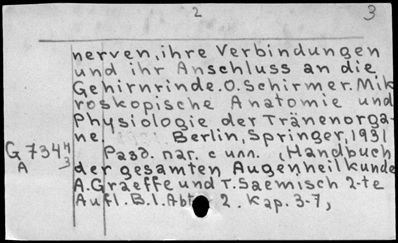 2 3
nerven, ihre Verbindungen
und ihr Anschluss an die
Gehirnrinde. O. Schirmer. Mik
roskopische Anatomie und
Physiologie der Tränenorga-
ne. Berlin, Springer, 1931
G 734 4/3
A
Разд. паг. с илл. (Handbuch
der gesamten Augenheilkunde
A. Graeffe und T. Saemisch 2-te
Aufl. B. I. Abt 2. Kap. 3-7,